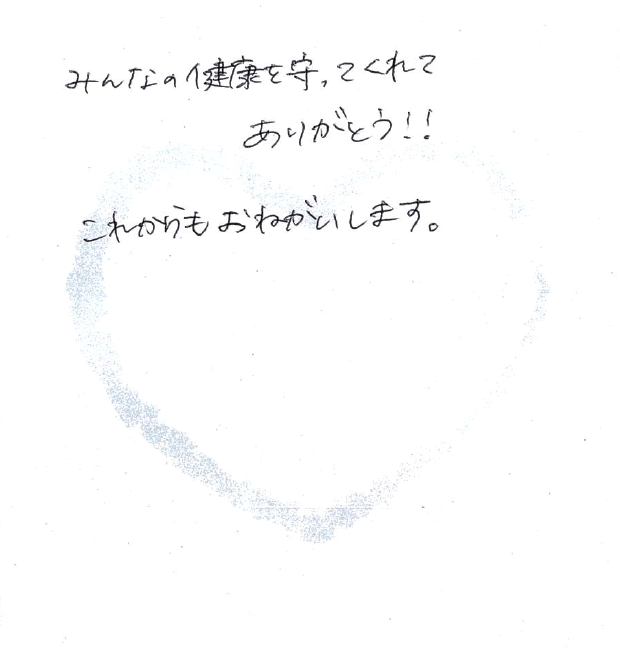 みんなの健康を守ってくれて
ありがとう!!
これからもおねがいします。